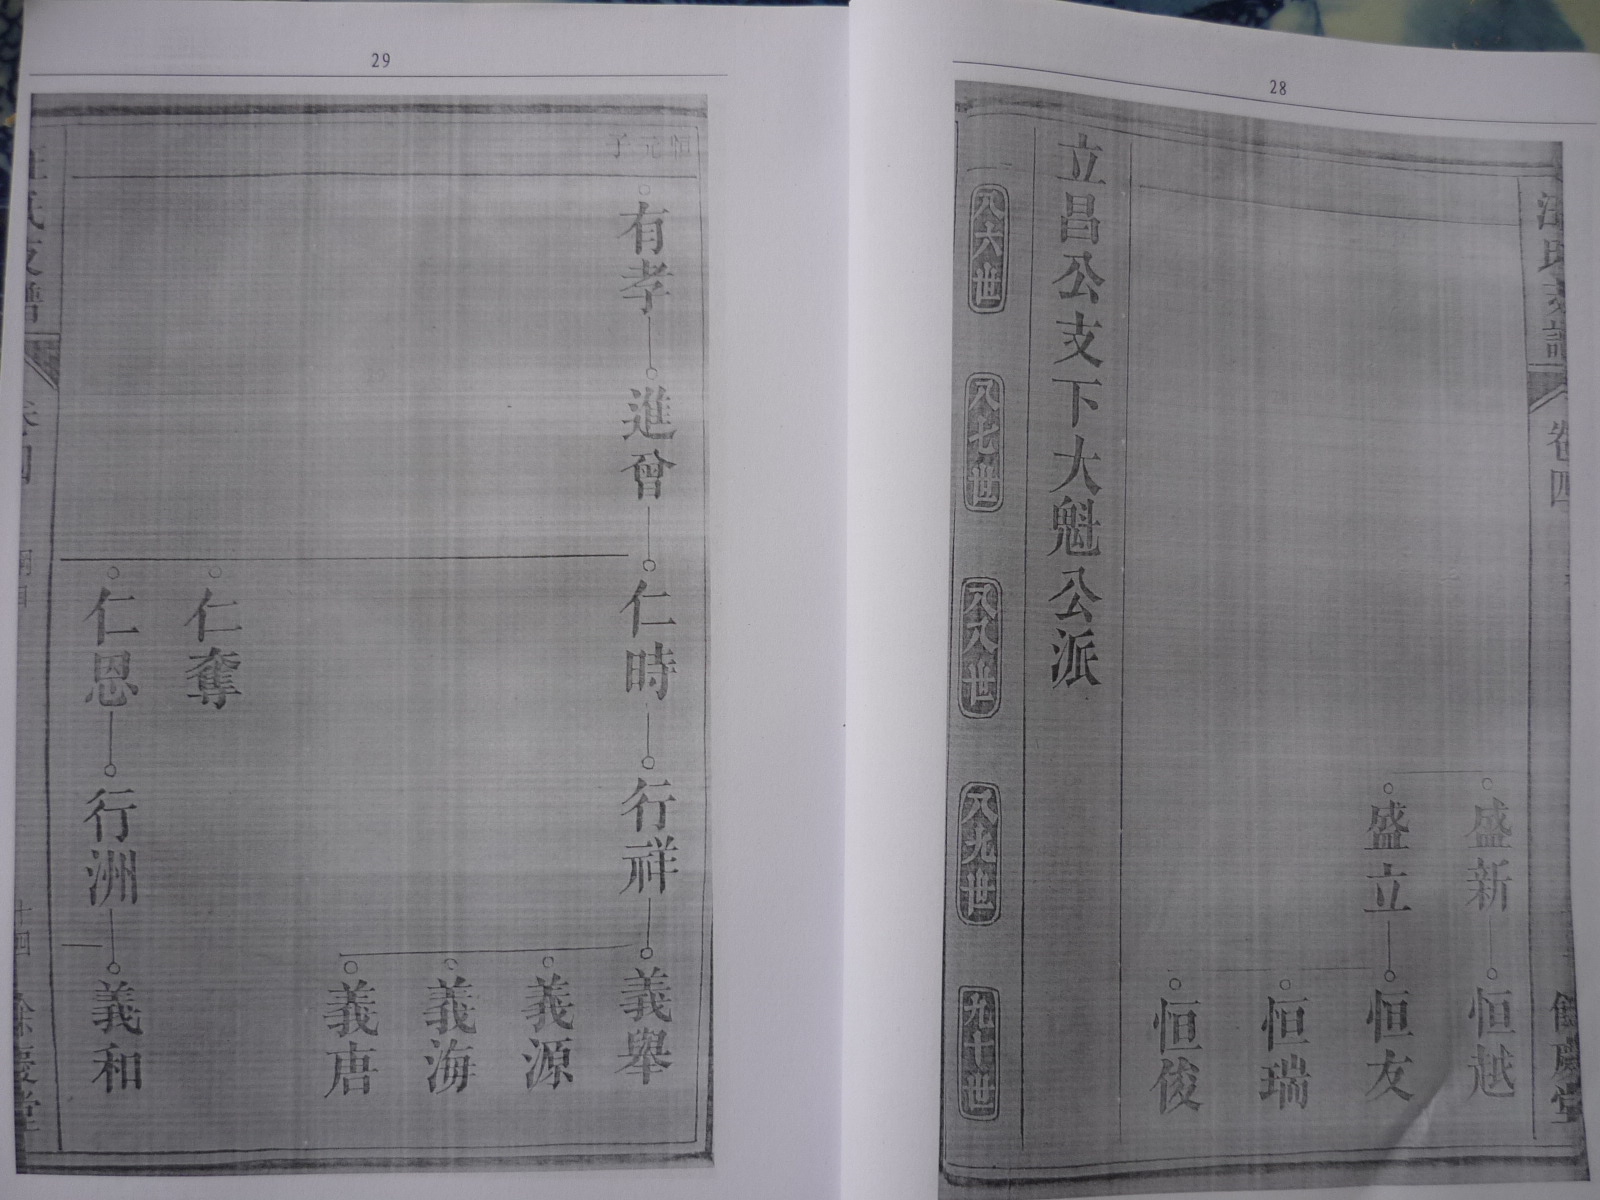 28
汪氏支譜
卷四
餘慶堂
盛新
恒越
盛立
恒友
恒瑞
恒俊
立昌公支下大魁公派
八六世
八七世
八八世
八九世
九十世
29
恒元子
有孝
進曾
仁時
行祥
義舉
義源
義海
義唐
仁奪
仁恩
行洲
義和
汪氏支譜
卷四
十四
餘慶堂